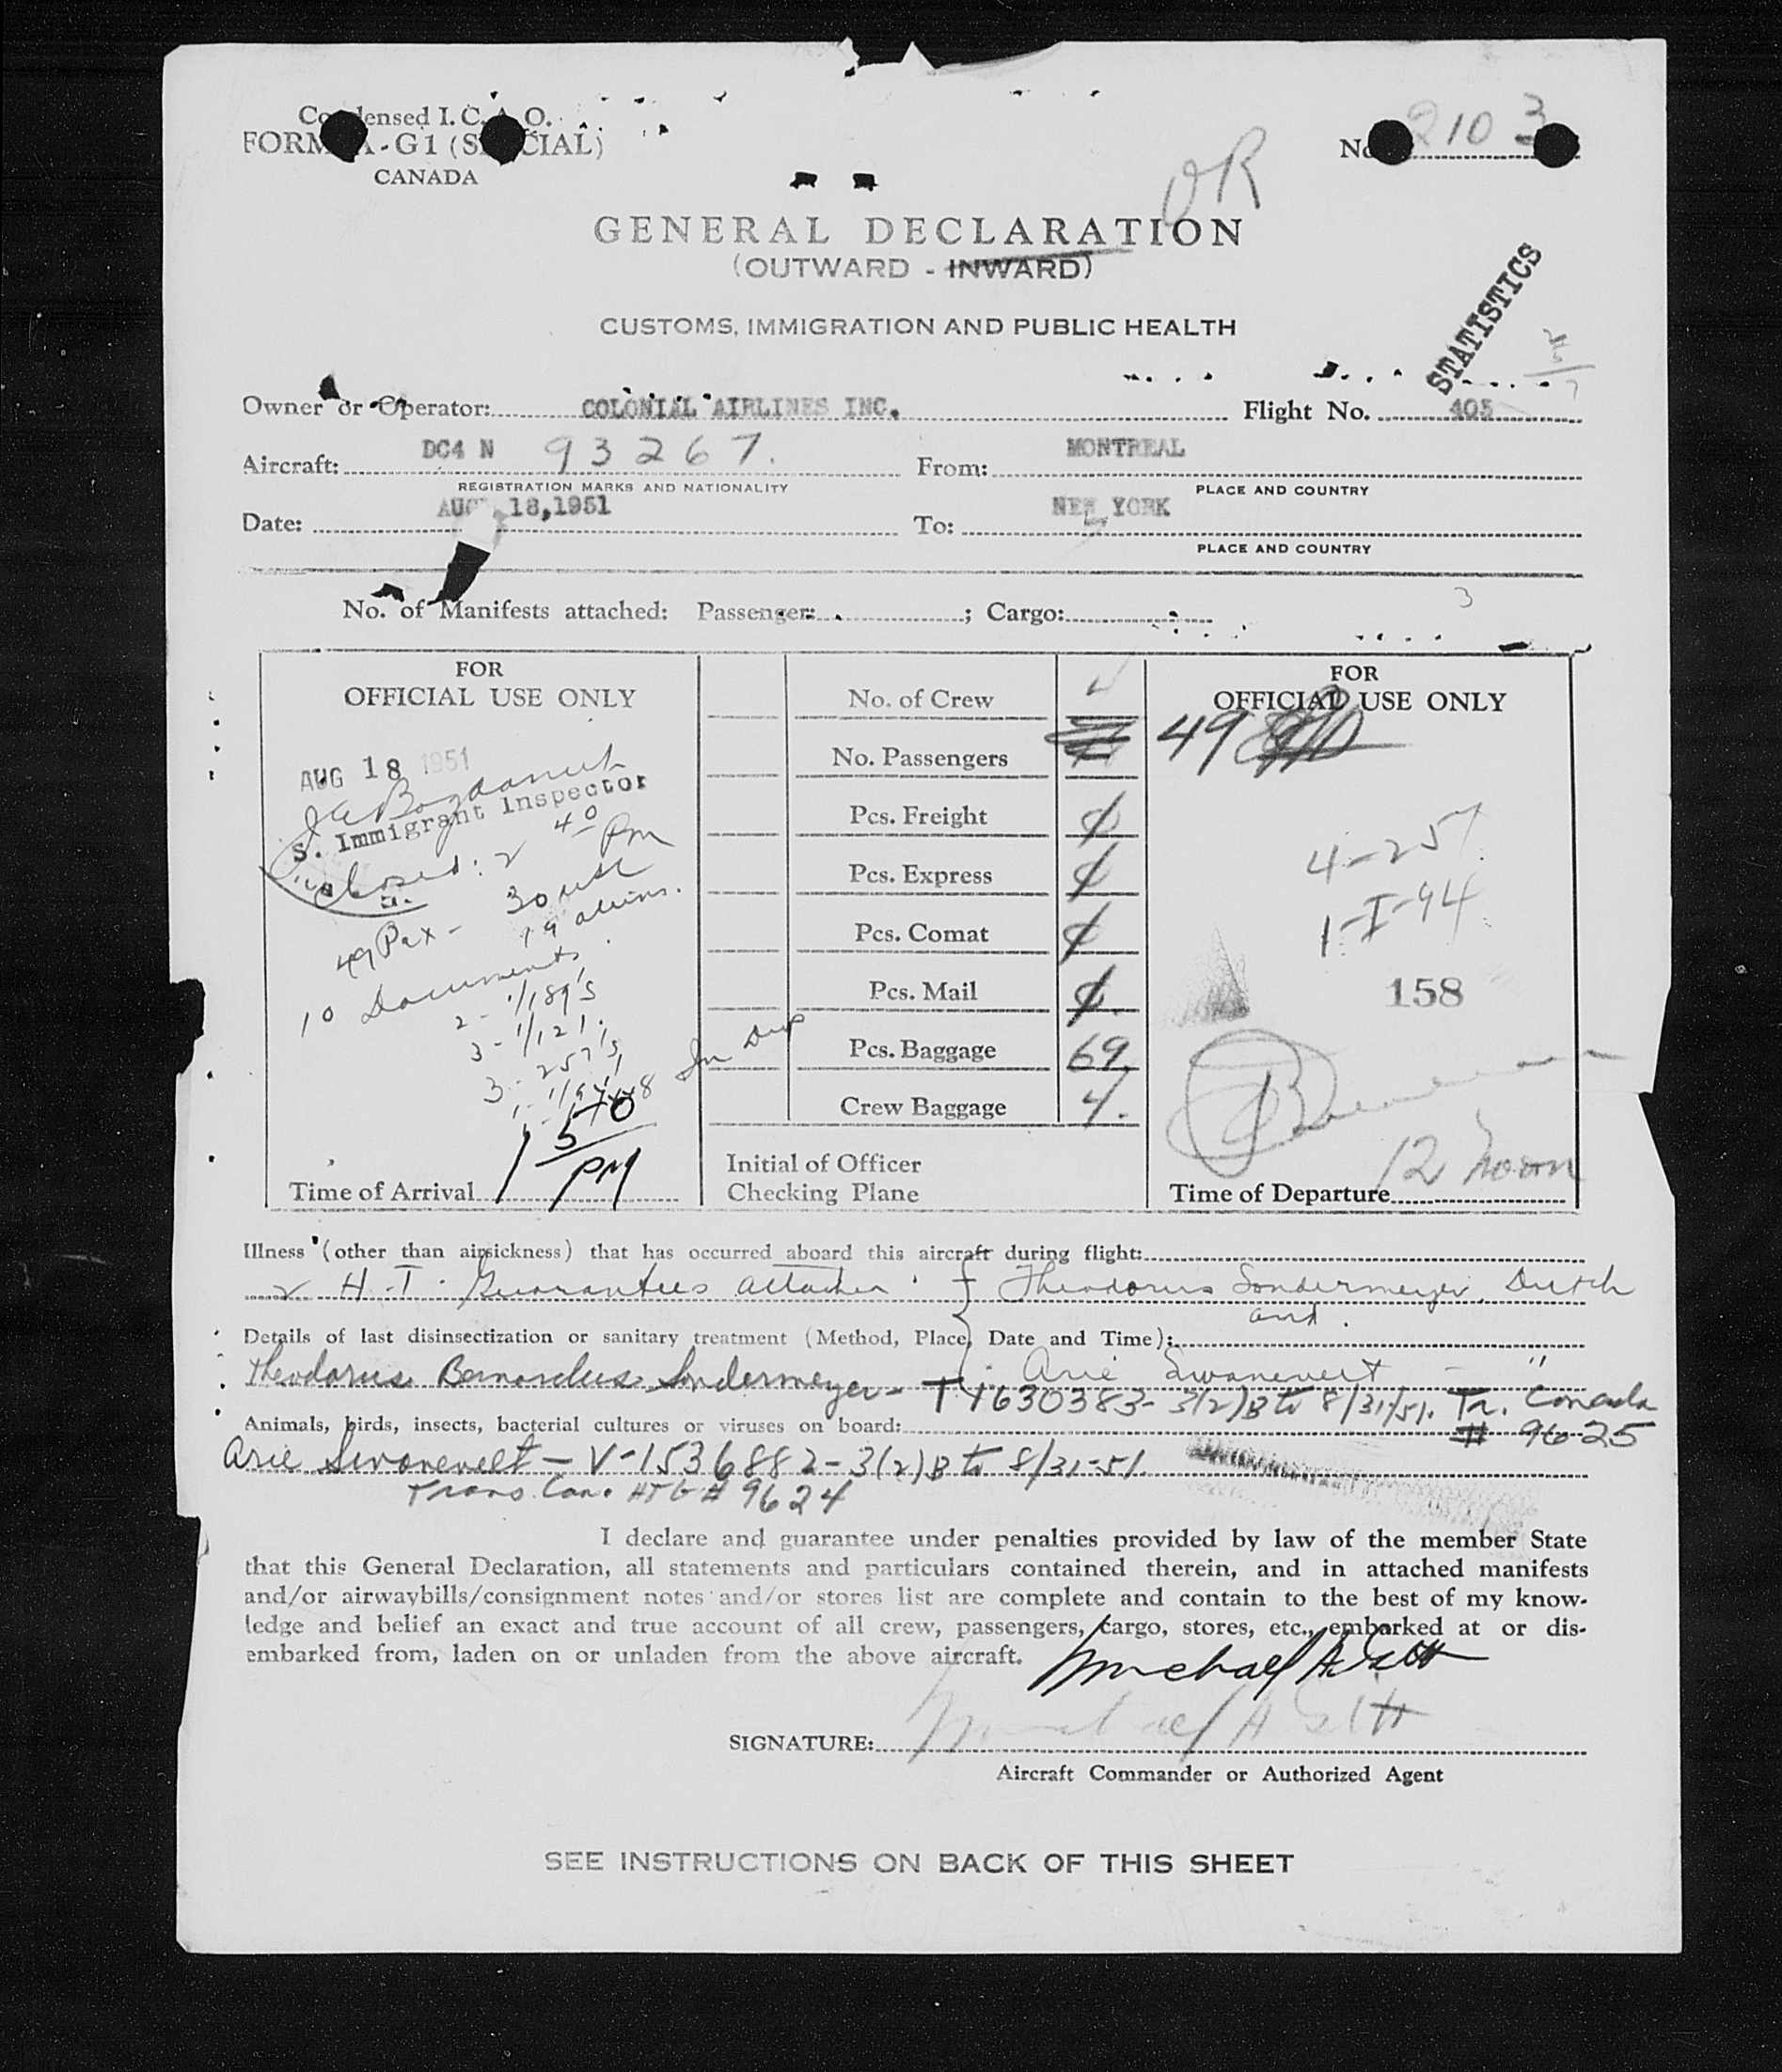 Condensed I. C. A. O.
FORM A-G1 (SPECIAL)
CANADA
No. 2103
OR
GENERAL DECLARATION
(OUTWARD - INWARD)
CUSTOMS, IMMIGRATION AND PUBLIC HEALTH
STATISTICS
Owner or Operator: COLONIAL AIRLINES INC. Flight No. 405
Aircraft: DC4 N 93267. From: MONTREAL
REGISTRATION MARKS AND NATIONALITY PLACE AND COUNTRY
Date: AUG 18,1951 To: NEW YORK
PLACE AND COUNTRY
3
No. of Manifests attached: Passenger: ; Cargo:
FOR
OFFICIAL USE ONLY
AUG 18 1951
S. Immigrant Inspector
Closed: 2 40 Pm
49 Pax - 30 usc
19 aliens.
10 Documents
2 - 1/189's
3 - 1/121.
3 - 257's
In Dup
1 50 PM
Time of Arrival
No. of Crew
No. Passengers
Pcs. Freight
Pcs. Express
Pcs. Comat
Pcs. Mail
Pcs. Baggage 69
Crew Baggage 4.
Initial of Officer
Checking Plane
FOR
OFFICIAL USE ONLY
49
4-257
1-I-94
158
12 noon
Time of Departure
Illness (other than airsickness) that has occurred aboard this aircraft during flight:
2 H.T. Guarantees attached } Theodorus Sondermeyer, Dutch
and
Details of last disinsectization or sanitary treatment (Method, Place, Date and Time):
Arie Swanevelt - "
Theodorus Bernardus Sondermeyer - T 1630383 - 3(2)B to 8/31/51. Tr. Canada
# 9625
Animals, birds, insects, bacterial cultures or viruses on board:
Arie Swanevelt - V-1536882 - 3(2)B to 8/31-51.
Trans. Can. HTG # 9624
I declare and guarantee under penalties provided by law of the member State
that this General Declaration, all statements and particulars contained therein, and in attached manifests
and/or airwaybills/consignment notes and/or stores list are complete and contain to the best of my know-
ledge and belief an exact and true account of all crew, passengers, cargo, stores, etc., embarked at or dis-
embarked from, laden on or unladen from the above aircraft.
Michael A
Michael A
SIGNATURE:
Aircraft Commander or Authorized Agent
SEE INSTRUCTIONS ON BACK OF THIS SHEET